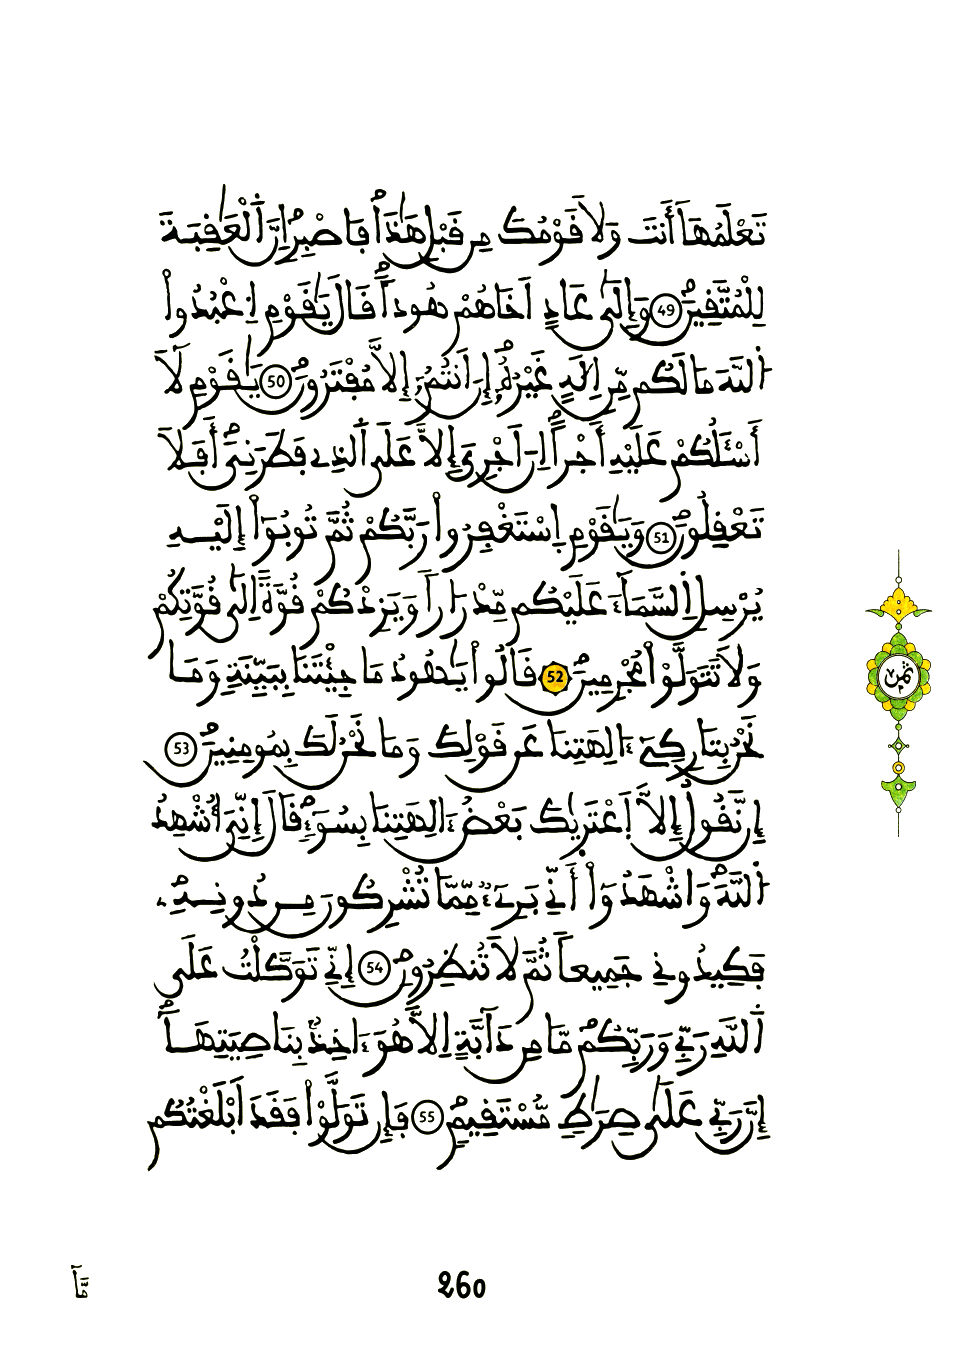 تَعْلَمُهَآ أَنتَ وَلَا قَوْمُكَ مِن قَبْلِ هَٰذَاۖ فَاصْبِرِۖ اِنَّ اَ۬لْعَٰقِبَةَ
لِلْمُتَّقِينَۖ 49 وَإِلَىٰ عَادٍ اَخَاهُمْ هُوداٗۖ قَالَ يَٰقَوْمِ اِ۟عْبُدُواْ
اُ۬للَّهَ مَا لَكُم مِّنِ اِلَٰهٍ غَيْرُهُۥٓۖ إِنَ اَنتُمُۥٓ إِلَّا مُفْتَرُونَۖ 50 يَٰقَوْمِ لَآ
أَسْـَٔلُكُمْ عَلَيْهِ أَجْراًۖ اِنَ اَجْرِيَ إِلَّا عَلَى اَ۬لذِے فَطَرَنِيٓۖ أَفَلَا
تَعْقِلُونَۖ 51 وَيَٰقَوْمِ اِ۪سْتَغْفِرُواْ رَبَّكُمْ ثُمَّ تُوبُوٓاْ إِلَيْهِ
يُرْسِلِ اِ۬لسَّمَآءَ عَلَيْكُم مِّدْرَاراٗ وَيَزِدْكُمْ قُوَّةً اِلَىٰ قُوَّتِكُمْ
وَلَا تَتَوَلَّوْاْ مُجْرِمِينَۖ 52 قَالُواْ يَٰهُودُ مَا جِئْتَنَا بِبَيِّنَةٖ وَمَا
نَحْنُ بِتَارِكِےٓ ءَالِهَتِنَا عَن قَوْلِكَ وَمَا نَحْنُ لَكَ بِمُومِنِينَۖ 53
إِن نَّقُولُ إِلَّا اَ۪عْتَرَيٰكَ بَعْضُ ءَالِهَتِنَا بِسُوٓءٖۖ قَالَ إِنِّيَ أُشْهِدُ
اُ۬للَّهَۖ وَاشْهَدُوٓاْ أَنِّے بَرِےٓءٞ مِّمَّا تُشْرِكُونَ مِن دُونِهِۦۖ
فَكِيدُونِے جَمِيعاٗ ثُمَّ لَا تُنظِرُونِۖ 54 إِنِّے تَوَكَّلْتُ عَلَى
اَ۬للَّهِ رَبِّے وَرَبِّكُمۖ مَّا مِن دَآبَّةٍ اِلَّا هُوَ ءَاخِذُۢ بِنَاصِيَتِهَآۖ
إِنَّ رَبِّے عَلَىٰ صِرَٰطٖ مُّسْتَقِيمٖۖ 55 فَإِن تَوَلَّوْاْ فَقَدَ اَبْلَغْتُكُم
ثمن
مَّآ
260